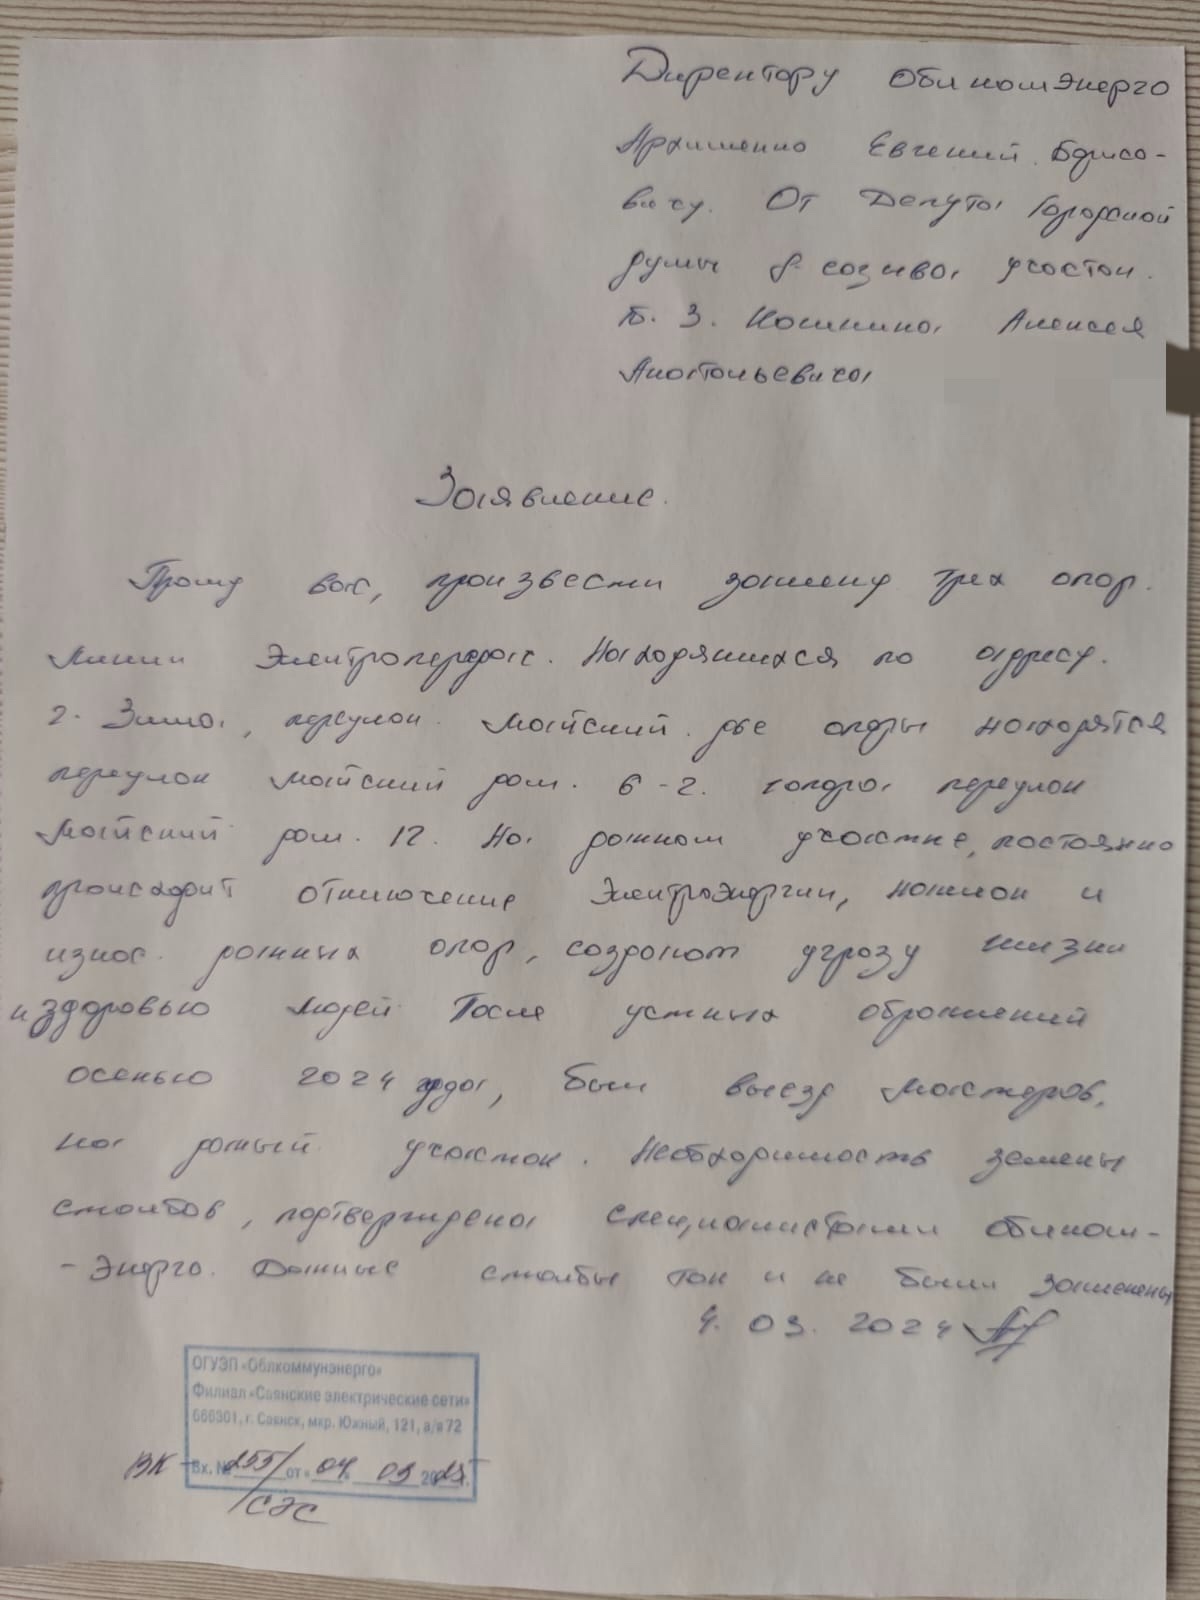 Директору ОблкомЭнерго
Евгений Борисо-
вичу. От Депутата Городской
думы 8 созыва, участок.
3. Кошкина Алексея
Анатольевича
Заявление.
Прошу вас, произвести замену трех опор.
Линии Электропередач. Находящихся по адресу.
г. Зима, переулок Майский две опоры находятся
переулок Майский дом. 6-2. 1 опора переулок
Майский дом. 12. На данном участке, постоянно
происходит отключение Электроэнергии, наклон и
износ данных опор, создают угрозу жизни
и здоровью людей После устных обращений
осенью 2024 года, был выезд мастеров,
на данный участок. Необходимость замены
столбов, подтверждена специалистами облком-
-Энерго. Данные столбы так и не были заменены
4. 03. 2024
ОГУЭП «Облкоммунэнерго»
Филиал «Саянские электрические сети»
666301, г. Саянск, мкр. Южный, 121, а/я 72
ВК Вх. № 255/ от «04» 03 20 г.
/СЭС